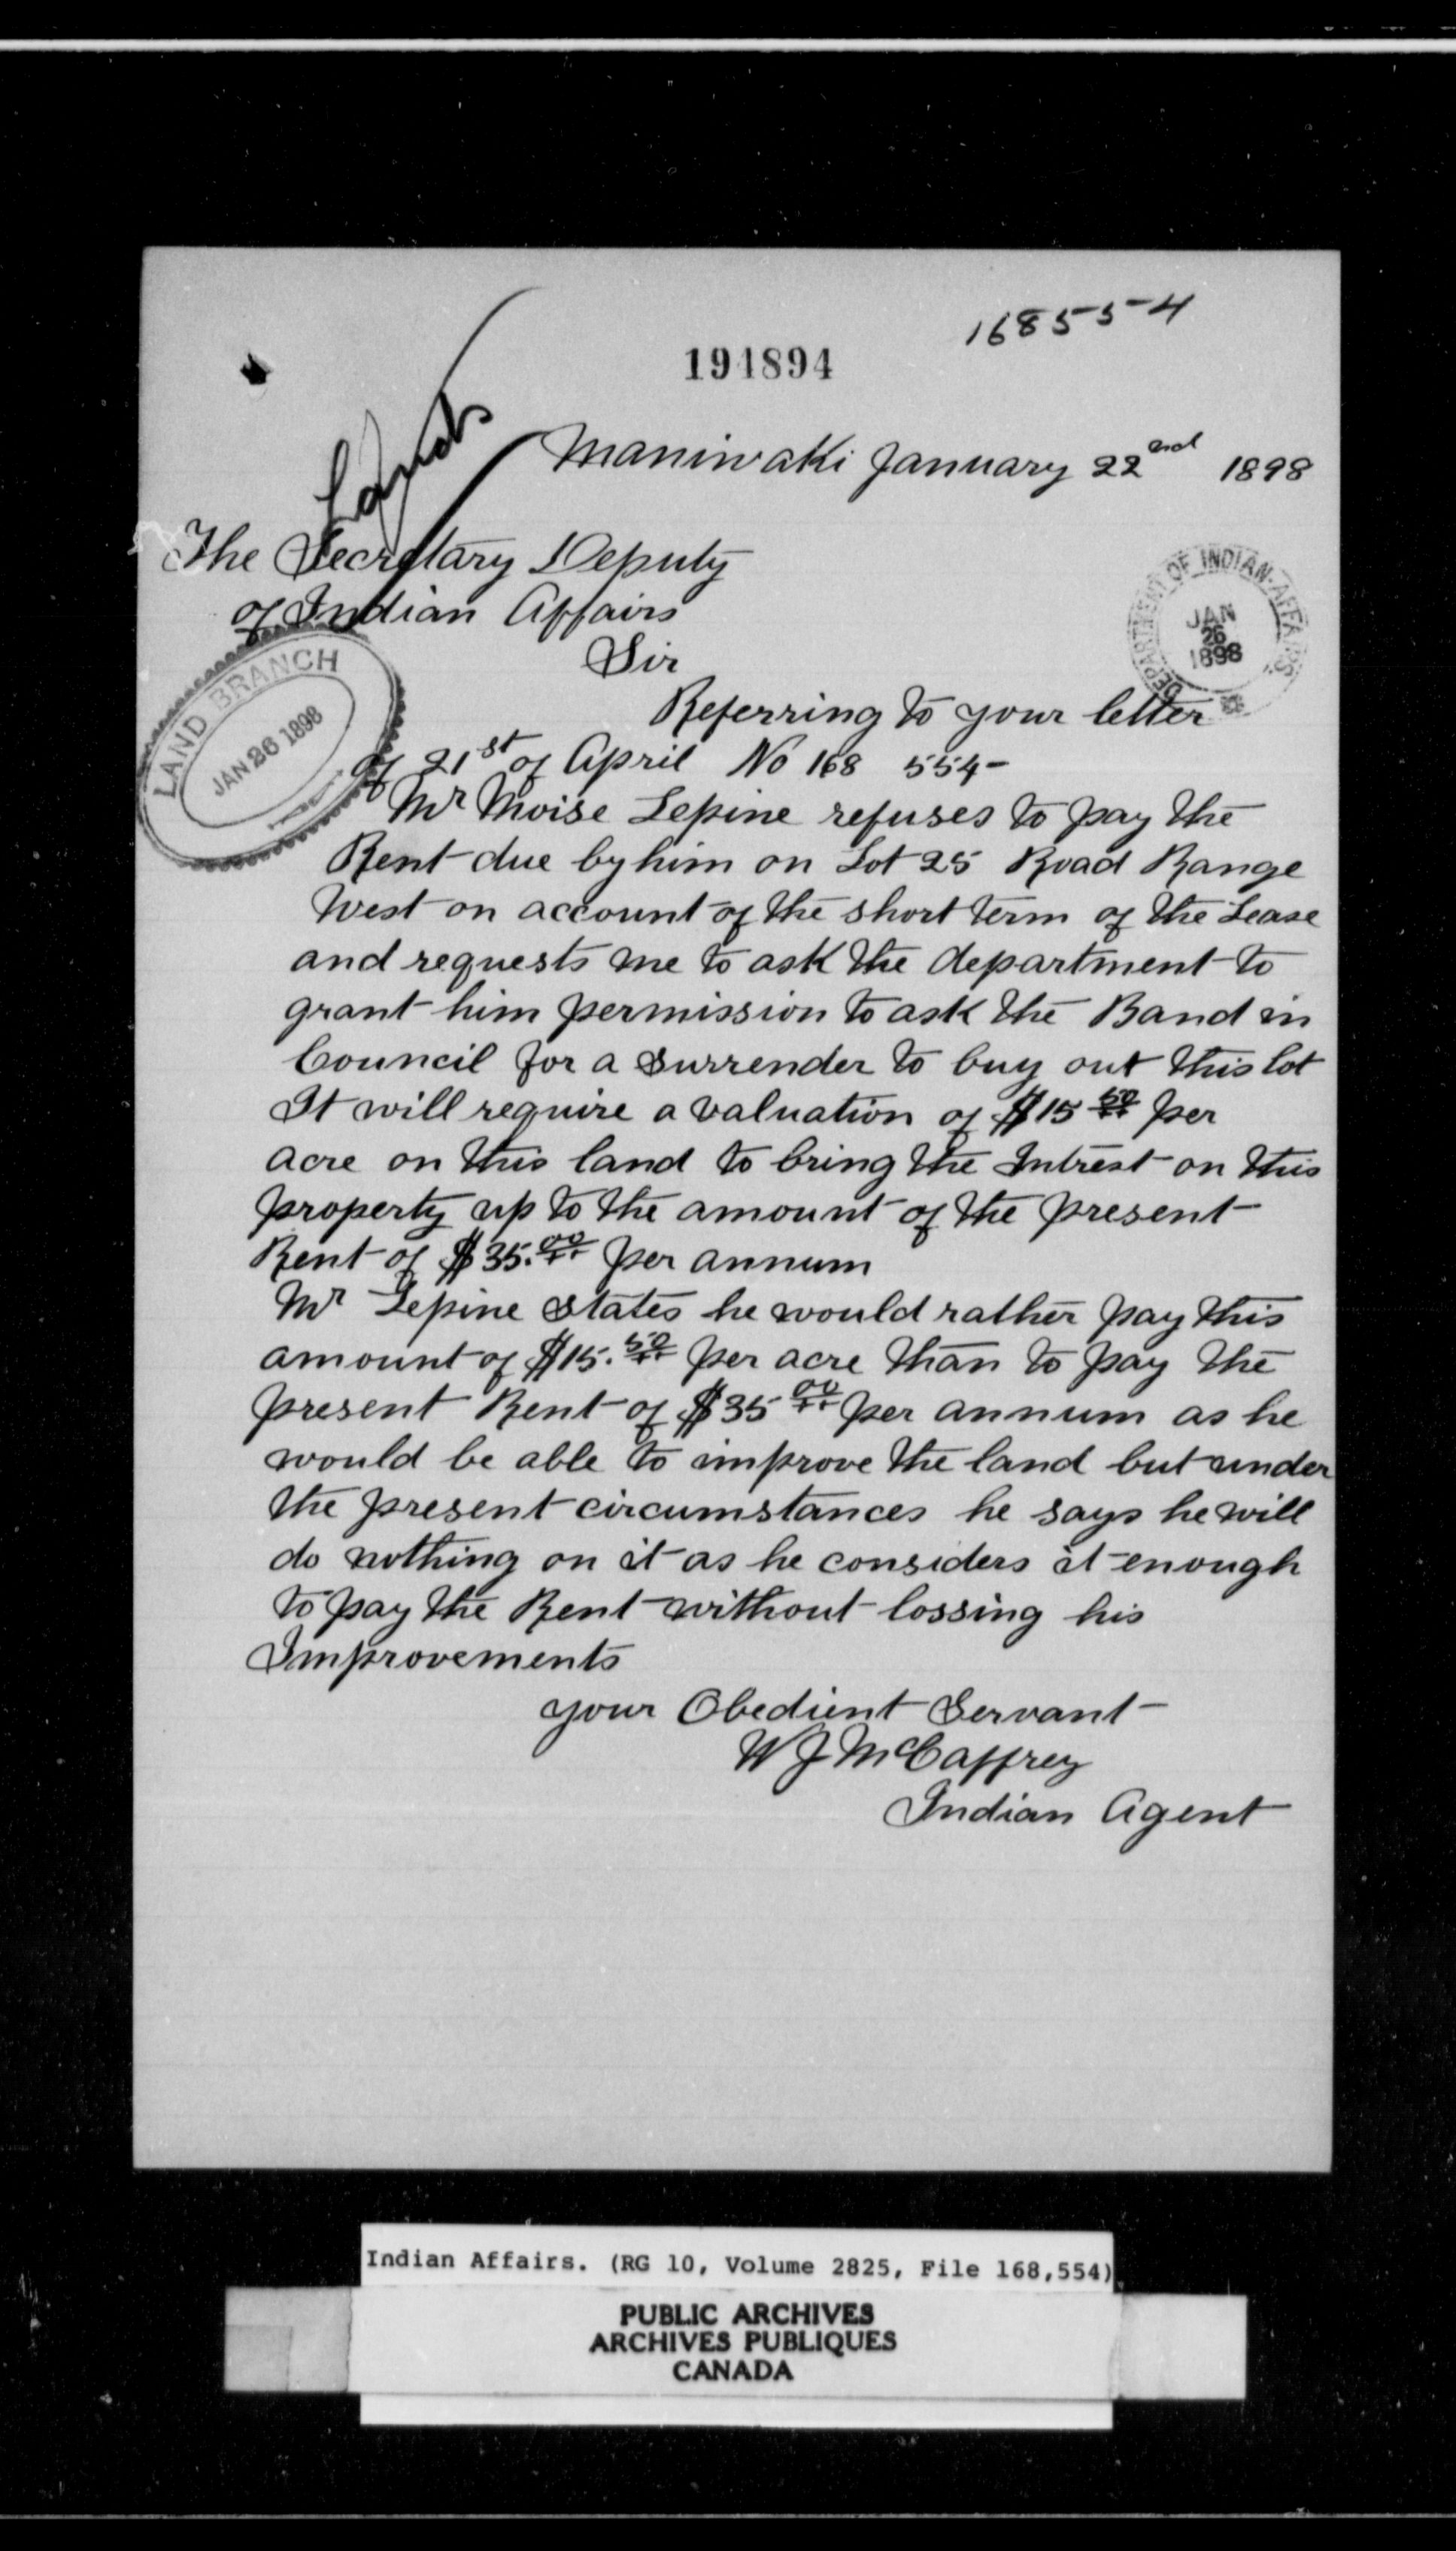 168554
194894
Lands
Maniwaki January 22nd 1898
The Secretary Deputy
of Indian Affairs
DEPARTMENT OF INDIAN AFFAIRS
JAN
26
1898
Sir
LAND BRANCH
JAN 26 1898
Referring to your letter
of 21st of April No 168 554-
Mr Moise Lepine refuses to pay the
Rent due by him on Lot 25 Road Range
West on account of the short term of the Lease
and requests me to ask the department to
grant him permission to ask the Band in
Council for a Surrender to buy out this lot
It will require a valuation of $15 50 per
acre on this land to bring the Intrest on this
property up to the amount of the present
Rent of $35.00 per annum
Mr Lepine states he would rather pay this
amount of $15.50 per acre than to pay the
present Rent of $35 00 per annum as he
would be able to improve the land but under
the present circumstances he says he will
do nothing on it as he considers it enough
to pay the Rent without lossing his
Improvements
your Obedient Servant
W J McCaffrey
Indian Agent
Indian Affairs. (RG 10, Volume 2825, File 168,554)
PUBLIC ARCHIVES
ARCHIVES PUBLIQUES
CANADA